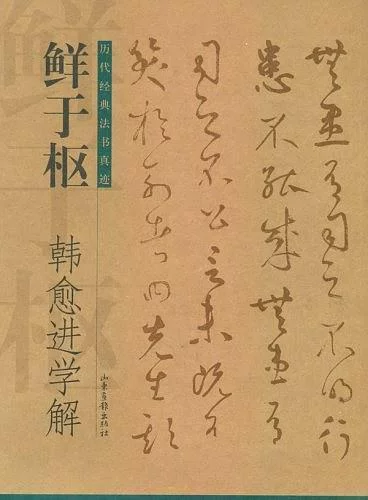 無患有司之不明行
患不能成無患有
司之不公言未既有
笑於列者曰先生欺
历代经典法书真迹
鲜于枢
韩愈进学解
山東畫報出版社
鲜于枢